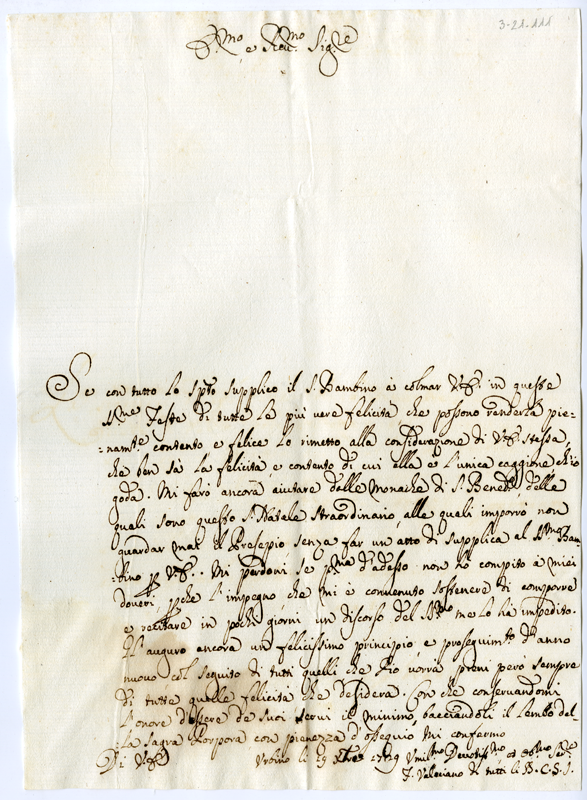 3-21-111
E.mo e Reu.mo Sig.re
Se con tutto lo spto supplico il S. Bambino à colmar V.E. in queste
SS.me Feste di tutte le più vere felicità che possono renderla pie-
=nam.te contento e felice lo rimetto alla considerazione di V.E. stessa,
che ben sà la felicità, e contento di cui ella è l'unica caggione, ch'io
goda. Mi farò ancora aiutare dalle Monache di S. Bened.o delle
quali sono questo S. Natale straordinario, alle quali imporrò non
guardar mai il Presepio senza far un atto di supplica al SS.mo Bam
=bino p V.E.. Mi perdoni se p.ma d'adesso non hò compito a miei
doveri, pche l'impegno che mi è convenuto sostenere di comporre
e recitare in pochi giorni un discorso del SS.mo me lo hà impedito.
Gl'auguro ancora un felicissimo principio, e proseguim.to d'anno
nuovo col seguito di tutti quelli che Dio vorrà, pieni però sempre
di tutte quelle felicità che desidera. Con che conservandomi
l'onore d'essere de suoi servi il minimo, bacciandoli il lembo del
=la sagra Porpora con pienezza d'ossequio mi confermo
Di V.E. Urbino li 19 Xbre 1729 Umil.mo Devotiss.mo ed Obl.mo Ser.e
F. Valeriano di tutti li S. C. S. I.